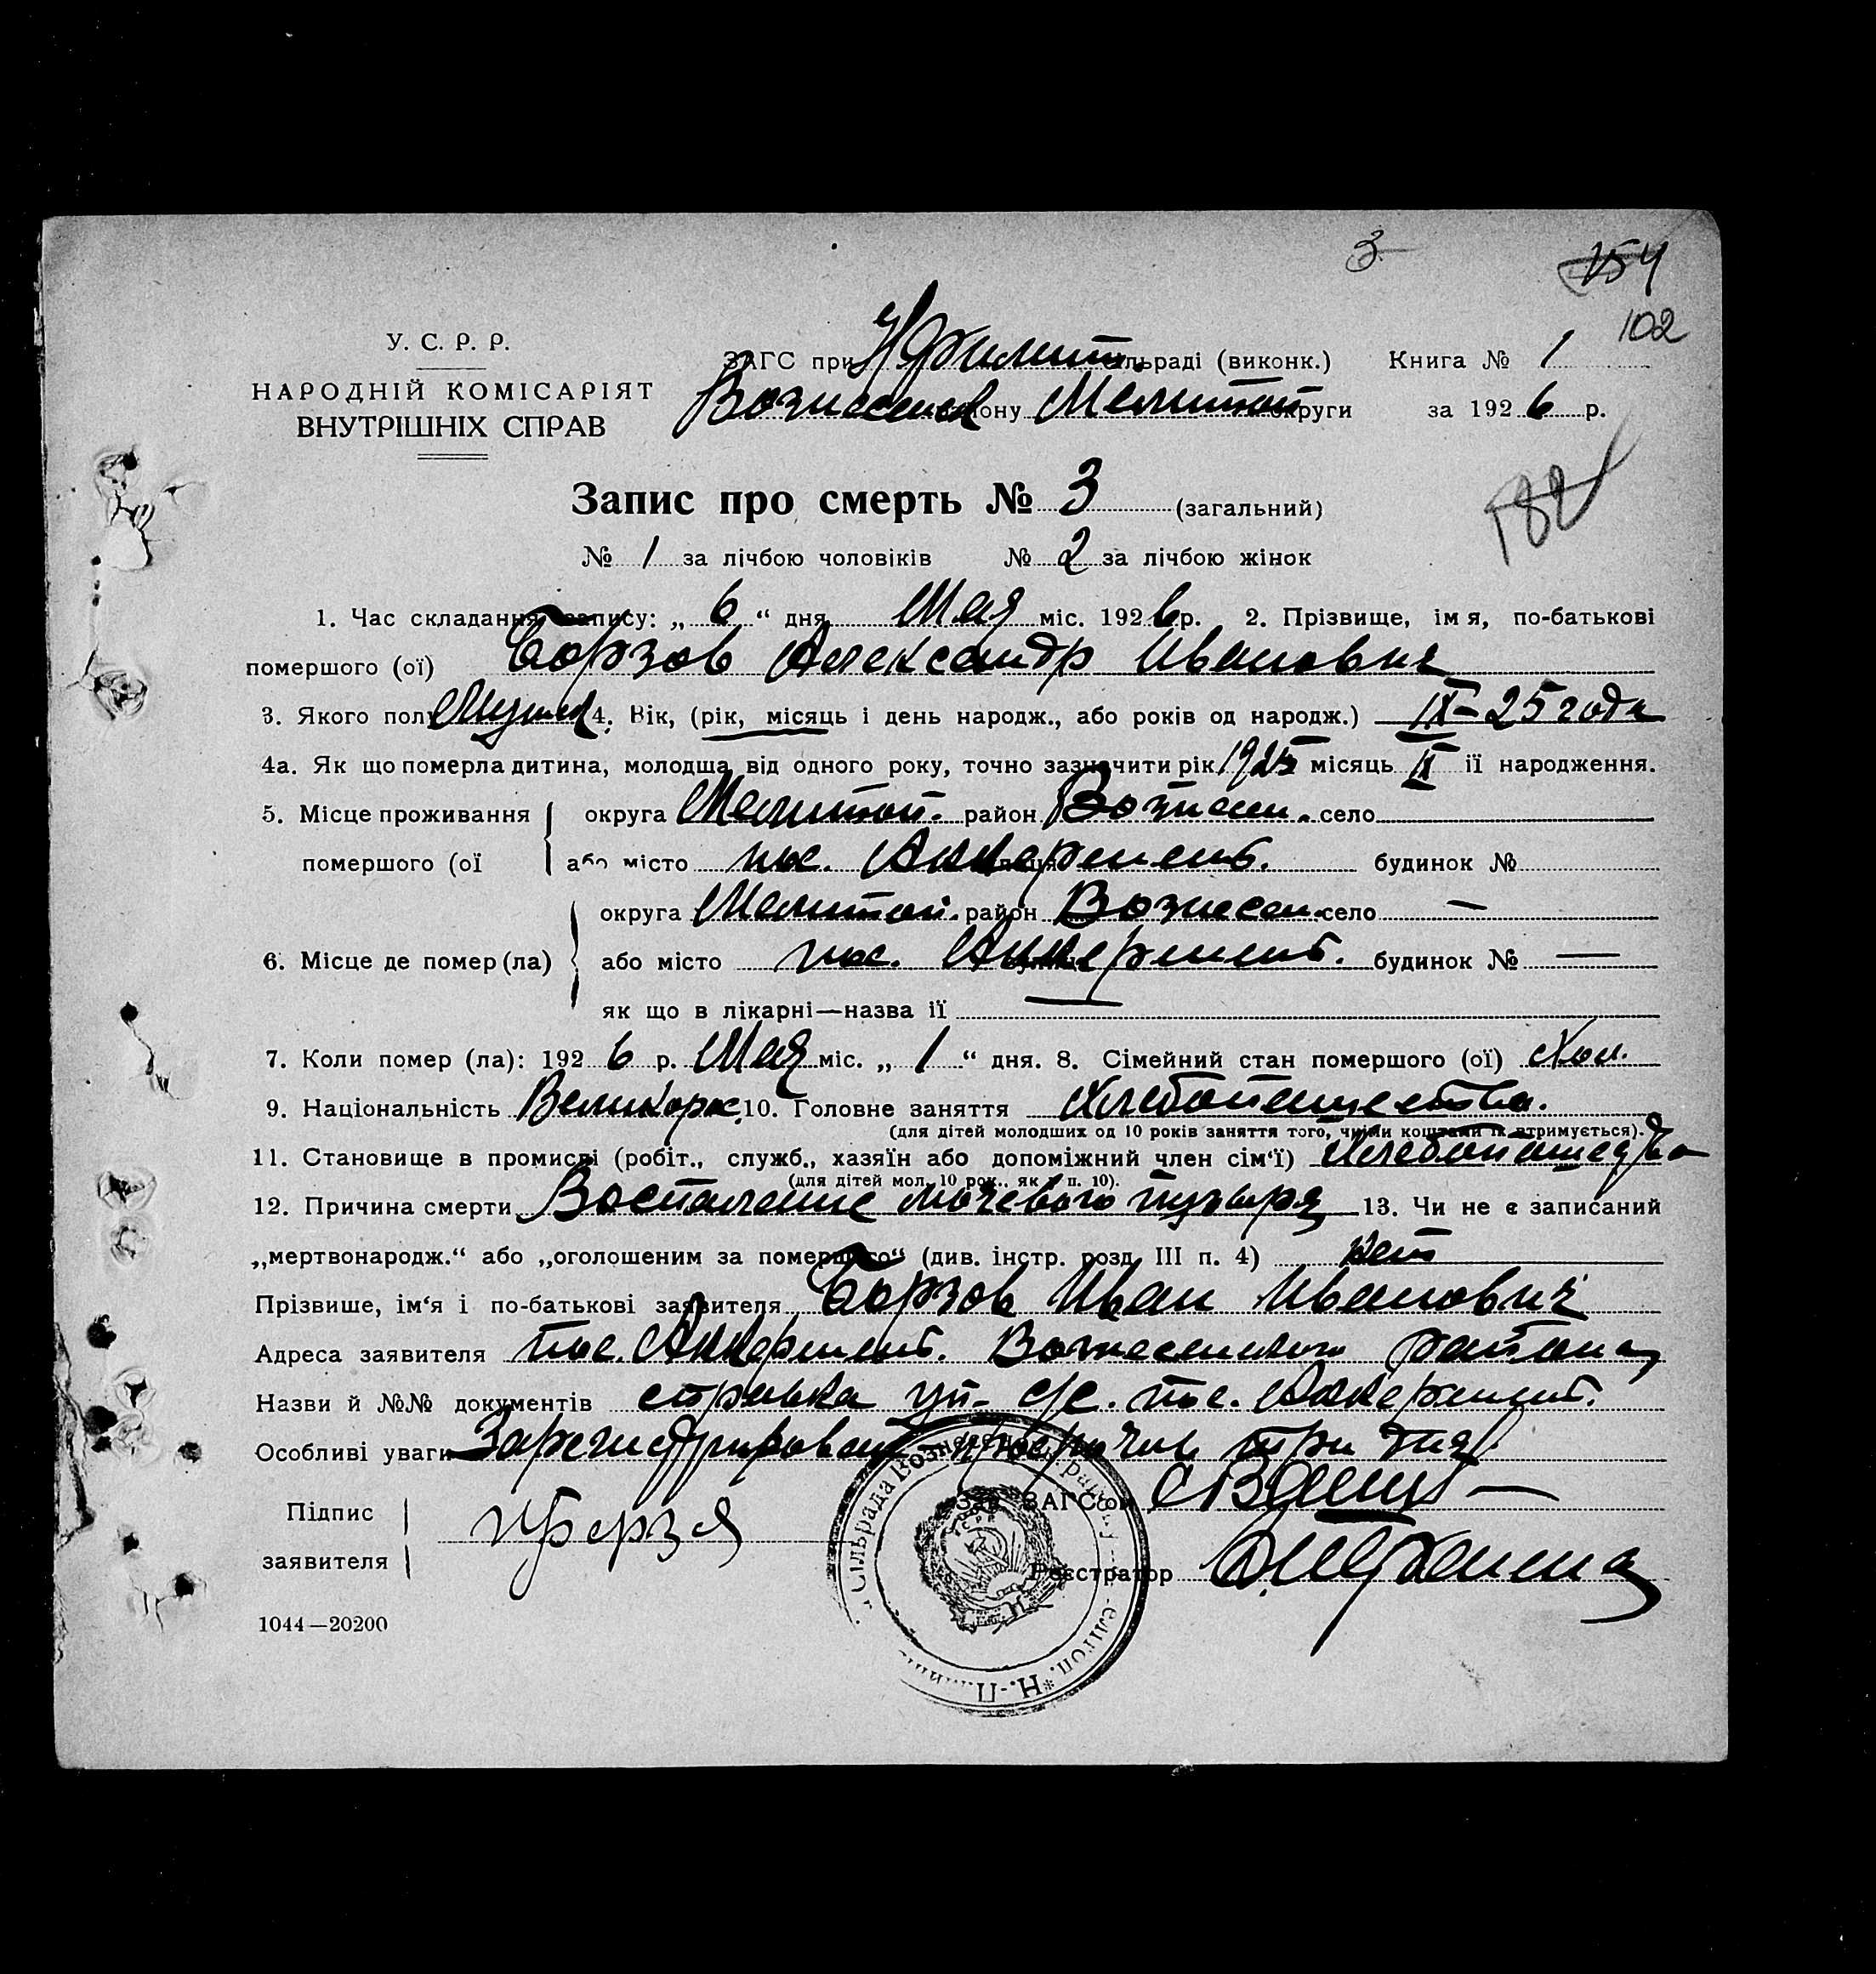 3
154
102
У. С. Р. Р.
НАРОДНІЙ КОМІСАРІЯТ
ВНУТРІШНІХ СПРАВ
ЗАГС при сільраді (виконк.) Книга № 1
Вознесенск району Мелитоп округи за 1926 р.
182
Запис про смерть № 3 (загальний)
№ 1 за лічбою чоловіків № 2 за лічбою жінок
1. Час складання запису: „ 6 “ дня Мая міс. 1926 р. 2. Прізвище, імя, по-батькові
помершого (ої) Борзов Александр Иванович
3. Якого полу Мужск 4. Вік, (рік, місяць і день народж., або років од народж.) IX-25 года
4а. Як що померла дитина, молодща від одного року, точно зазначити рік 1925 місяць IX її народження.
5. Місце проживання округа Мелитоп. район Вознесен. село
помершого (ої або місто пос. будинок №
округа Мелитоп. район Вознесен. село —
6. Місце де помер (ла) або місто пос. будинок № —
як що в лікарні—назва її —
7. Коли помер (ла): 1926 р. Мая міс. „ 1 “ дня. 8. Сімейний стан помершого (ої) Хол.
9. Національність Великорос. 10. Головне заняття Хлебопашество.
(для дітей молодших од 10 років заняття того, чиїми коштами їх втримується).
11. Становище в промислі (робіт., служб., хазяїн або допоміжний член сім‘ї)
(для дітей мол. 10 рок., як в п. 10).
12. Причина смерти Воспаление мочевого пузыря 13. Чи не є записаний
„мертвонародж.“ або „оголошеним за помершого“ (див. інстр. розд. III п. 4) нет
Прізвише, ім‘я і по-батькові заявителя Борзов Иван Иванович
Адреса заявителя пос. Вознесенского района
Назви й №№ документів справка уп- с/с. пос.
Особливі уваги Зарегистрирован просрочив три дня
Підпис
заявителя
Зав. ЗАГС'ом
Реєстратор
1044—20200